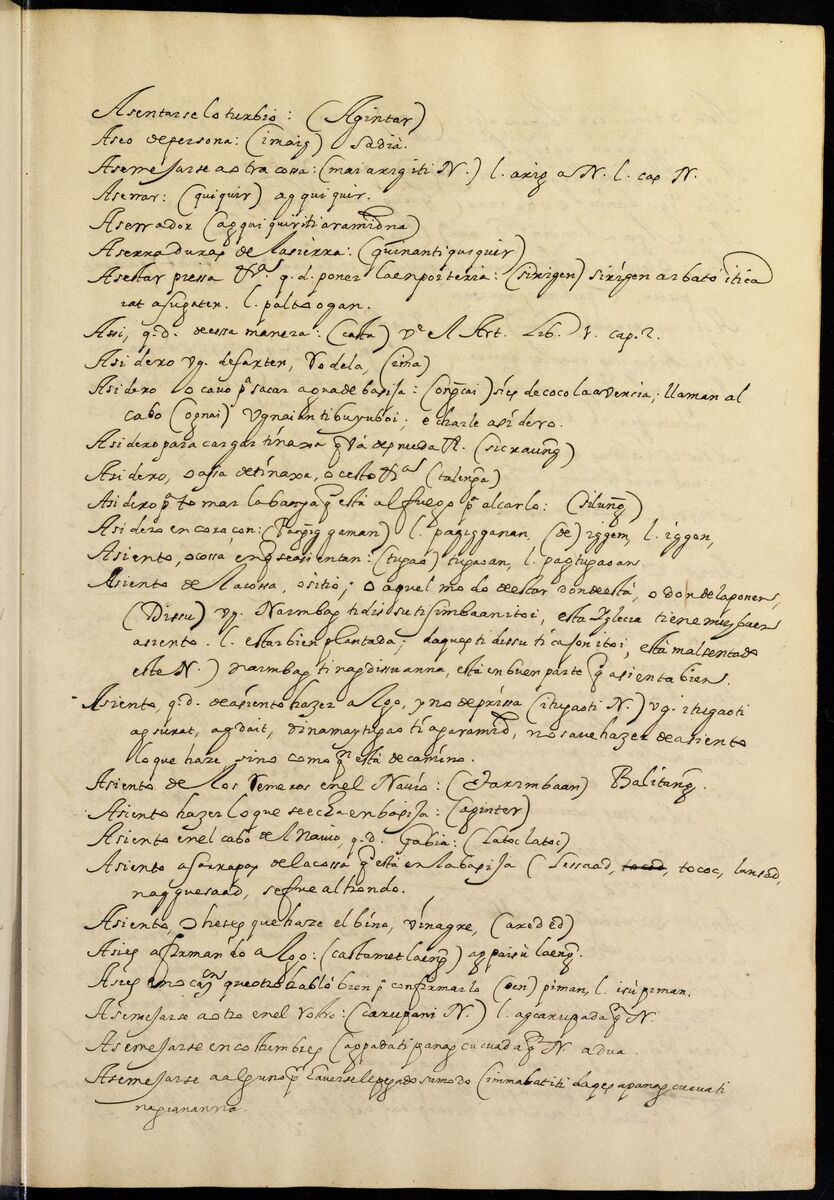 Asentarse lo turbio: (Agintar)
Aseo de persona: (imaig) sadià.
Asemejarse a otra cossa: (mai arig iti N.) l. arig a N. l. cap N.
Aserrar: (quiquir) agquiquir.
Aserrador (agquiquiriti aramidna)
Aserraduras de la sierra: (quinantiquiquir)
Asestar piessa &.ª q.d. poner la en porteria: (sirigen) sirigen ar bato itica
rat asugaten. l. paltoogan.
Assi, q.d. de essa manera: (casta) v.e Al Art. Lib. 1. cap. 2.
Asidero vg. de sarten, rodela, (ima)
Asidero o cavo p.ª sacar agua de basija: (ongcai) si es de coco la avencia; llaman al
cabo (ognai) vgnaiantibuyuboi; echarle asidero.
Asidero para cargar tinaxa q̃ và de rueda &. (sicraung)
Asidero, o asa de tinaxa, o cesto &.as (talenga)
Asidero p.ª tomar la banga q̃ està al fuego p.ª alcarlo: (silung)
Asidero en coraçon: gaman) l. pagigganan, (de) iggem, l. iggen,
Asiento, o cossa en q̃ se asientan: (tugao) tugaoan, l. pagtugaoan.
Asiento de la cossa, o sitio; o aquel modo de estar donde està, o donde la ponen,
(Dissu) vg. Naimbag ti dissu ti simbaanitoi, esta Yglecia tiene muy buen
asiento. l. estar bien plantada; daques ti dissu ti casonitoi, està mal sentado
este N.) naimbag ti nagdissuanna, està en buen parte q̃ asienta bien.
Asiento, q.d. de asiento hazer algo, y no de prissa (itugaoti N.) vg. itugaoti
agsurat, agdait, dinamaytugao ti agaramid, no save hazer de asiento
lo que haze, sino como q̃n està de camino.
Asiento de los remeros en el Navio: (Tarimbaan) Balitang.
Asiento hazer lo que se echa en basija: (aginter)
Asiento en el cabo del navio, q.d. Gabia: (latoclatoc)
Asiento asurapag de la cossa q̃ està en la basija (Lessaad, tocod, tococ, lansad,
naguesaad, se fue al hondo.
Asiento, o heses que haze el bino, vinagre, (areded)
Asies afirmando algo: (castametlaeng) agpaisù laeng.
Asies en ocas.on que otro hablò bien p.ª confirmarlo (oen) piman, l. isù piman.
Asemejarse a otro en el rostro: (carupani N.) l. agcarupada q̃ N.
Asemejarse en costumbres (agpadati panagcucuada q̃ N. adua.
Asemejarse a alguno p.r averse le pegado su modo (immabatiti daqes a panagcucuati
nagiananna.